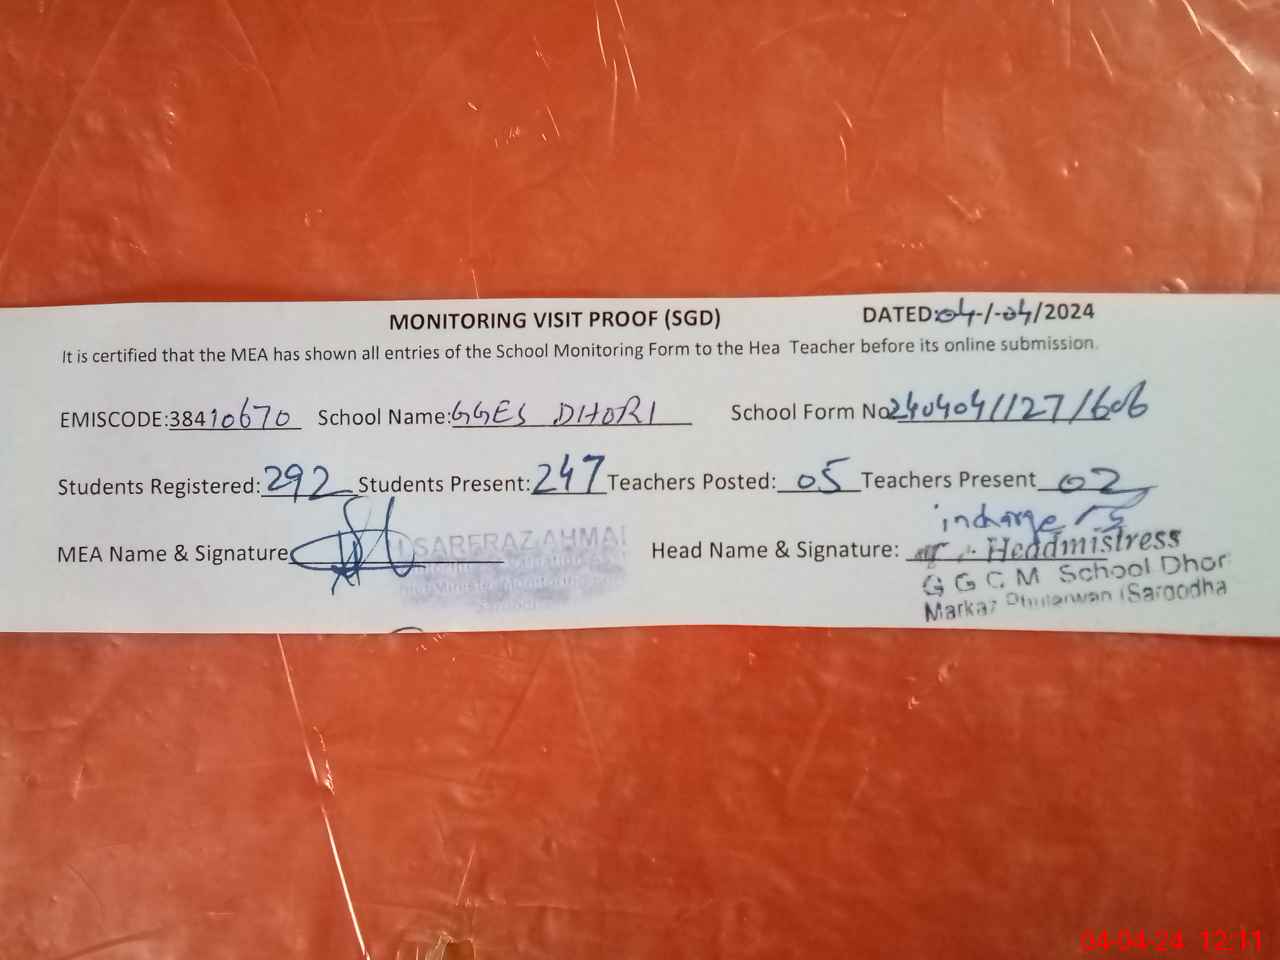 MONITORING VISIT PROOF (SGD) DATED:04-/-04/2024
It is certified that the MEA has shown all entries of the School Monitoring Form to the Hea Teacher before its online submission.
EMISCODE:38410670 School Name:GGES DHORI School Form No 240404/127/606
Students Registered: 292 Students Present: 247 Teachers Posted: 05 Teachers Present 02
MEA Name & Signature SARFRAZ AHMAD Head Name & Signature: incharge
Headmistress
G G C M School Dhori
Markaz Phularwan (Sargodha
04-04-24 12:11